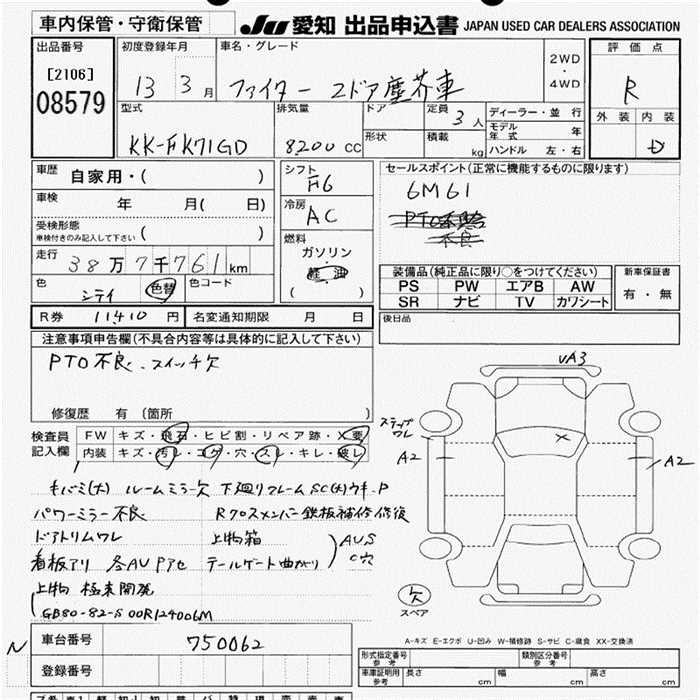 車内保管・守衛保管
JU 愛知 出品申込書 JAPAN USED CAR DEALERS ASSOCIATION
出品番号
[2106]
08579
初度登録年月
13 3月
車名・グレード
ファイター 2ドア塵芥車
2WD
・
4WD
評価点
R
外装 内装
D
型式
KK-FK71GD
排気量
8200 CC
ドア
形状
定員 3人
積載 kg
ディーラー・並行
モデル年式 年
ハンドル 左・右
車歴
自家用・( )
車検
年 月( 日)
受検形態
車検付きのみ記入して下さい ( )
走行
38万7千761km
色
シテイ 色替
色コード
シフト
F6
冷房
AC
燃料
ガソリン
・
軽油
( )
セールスポイント(正常に機能するものに限ります)
6M61
PTO不具合
不良
装備品(純正品に限り○をつけてください)
PS PW エアB AW
SR ナビ TV カワシート
新車保証書
有・無
R券 11410円
名変通知期限 月 日
後日品
注意事項申告欄(不具合内容等は具体的に記入して下さい)
PTO不良、スイッチ欠
修復歴 有 (箇所 )
検査員
記入欄
FW キズ・飛石・ヒビ割・リペア跡・X要
内装 キズ・汚レ・コゲ・穴・スレ・キレ・破レ
キバミ(大) ルームミラー欠 下廻りフレームSC(大)ウキ、P
パワーミラー不良 Rクロスメンバー鉄板補修修復
ドアトリムワレ 上物箱 AUS
看板アリ 各AUPアセ テールゲート曲がり C穴
上物 極東開発
GB80-82-S 00R124006M
VA3
ステップ
ワレ
A2
A2
X
欠
スペア
A-キズ E-エクボ U-凹み W-補修跡 S-サビ C-腐食 XX-交換済
N
車台番号 750062
登録番号
形式指定番号
参考
類別区分番号
参考
車庫証明用
参考
長さ cm 幅 cm 高さ cm